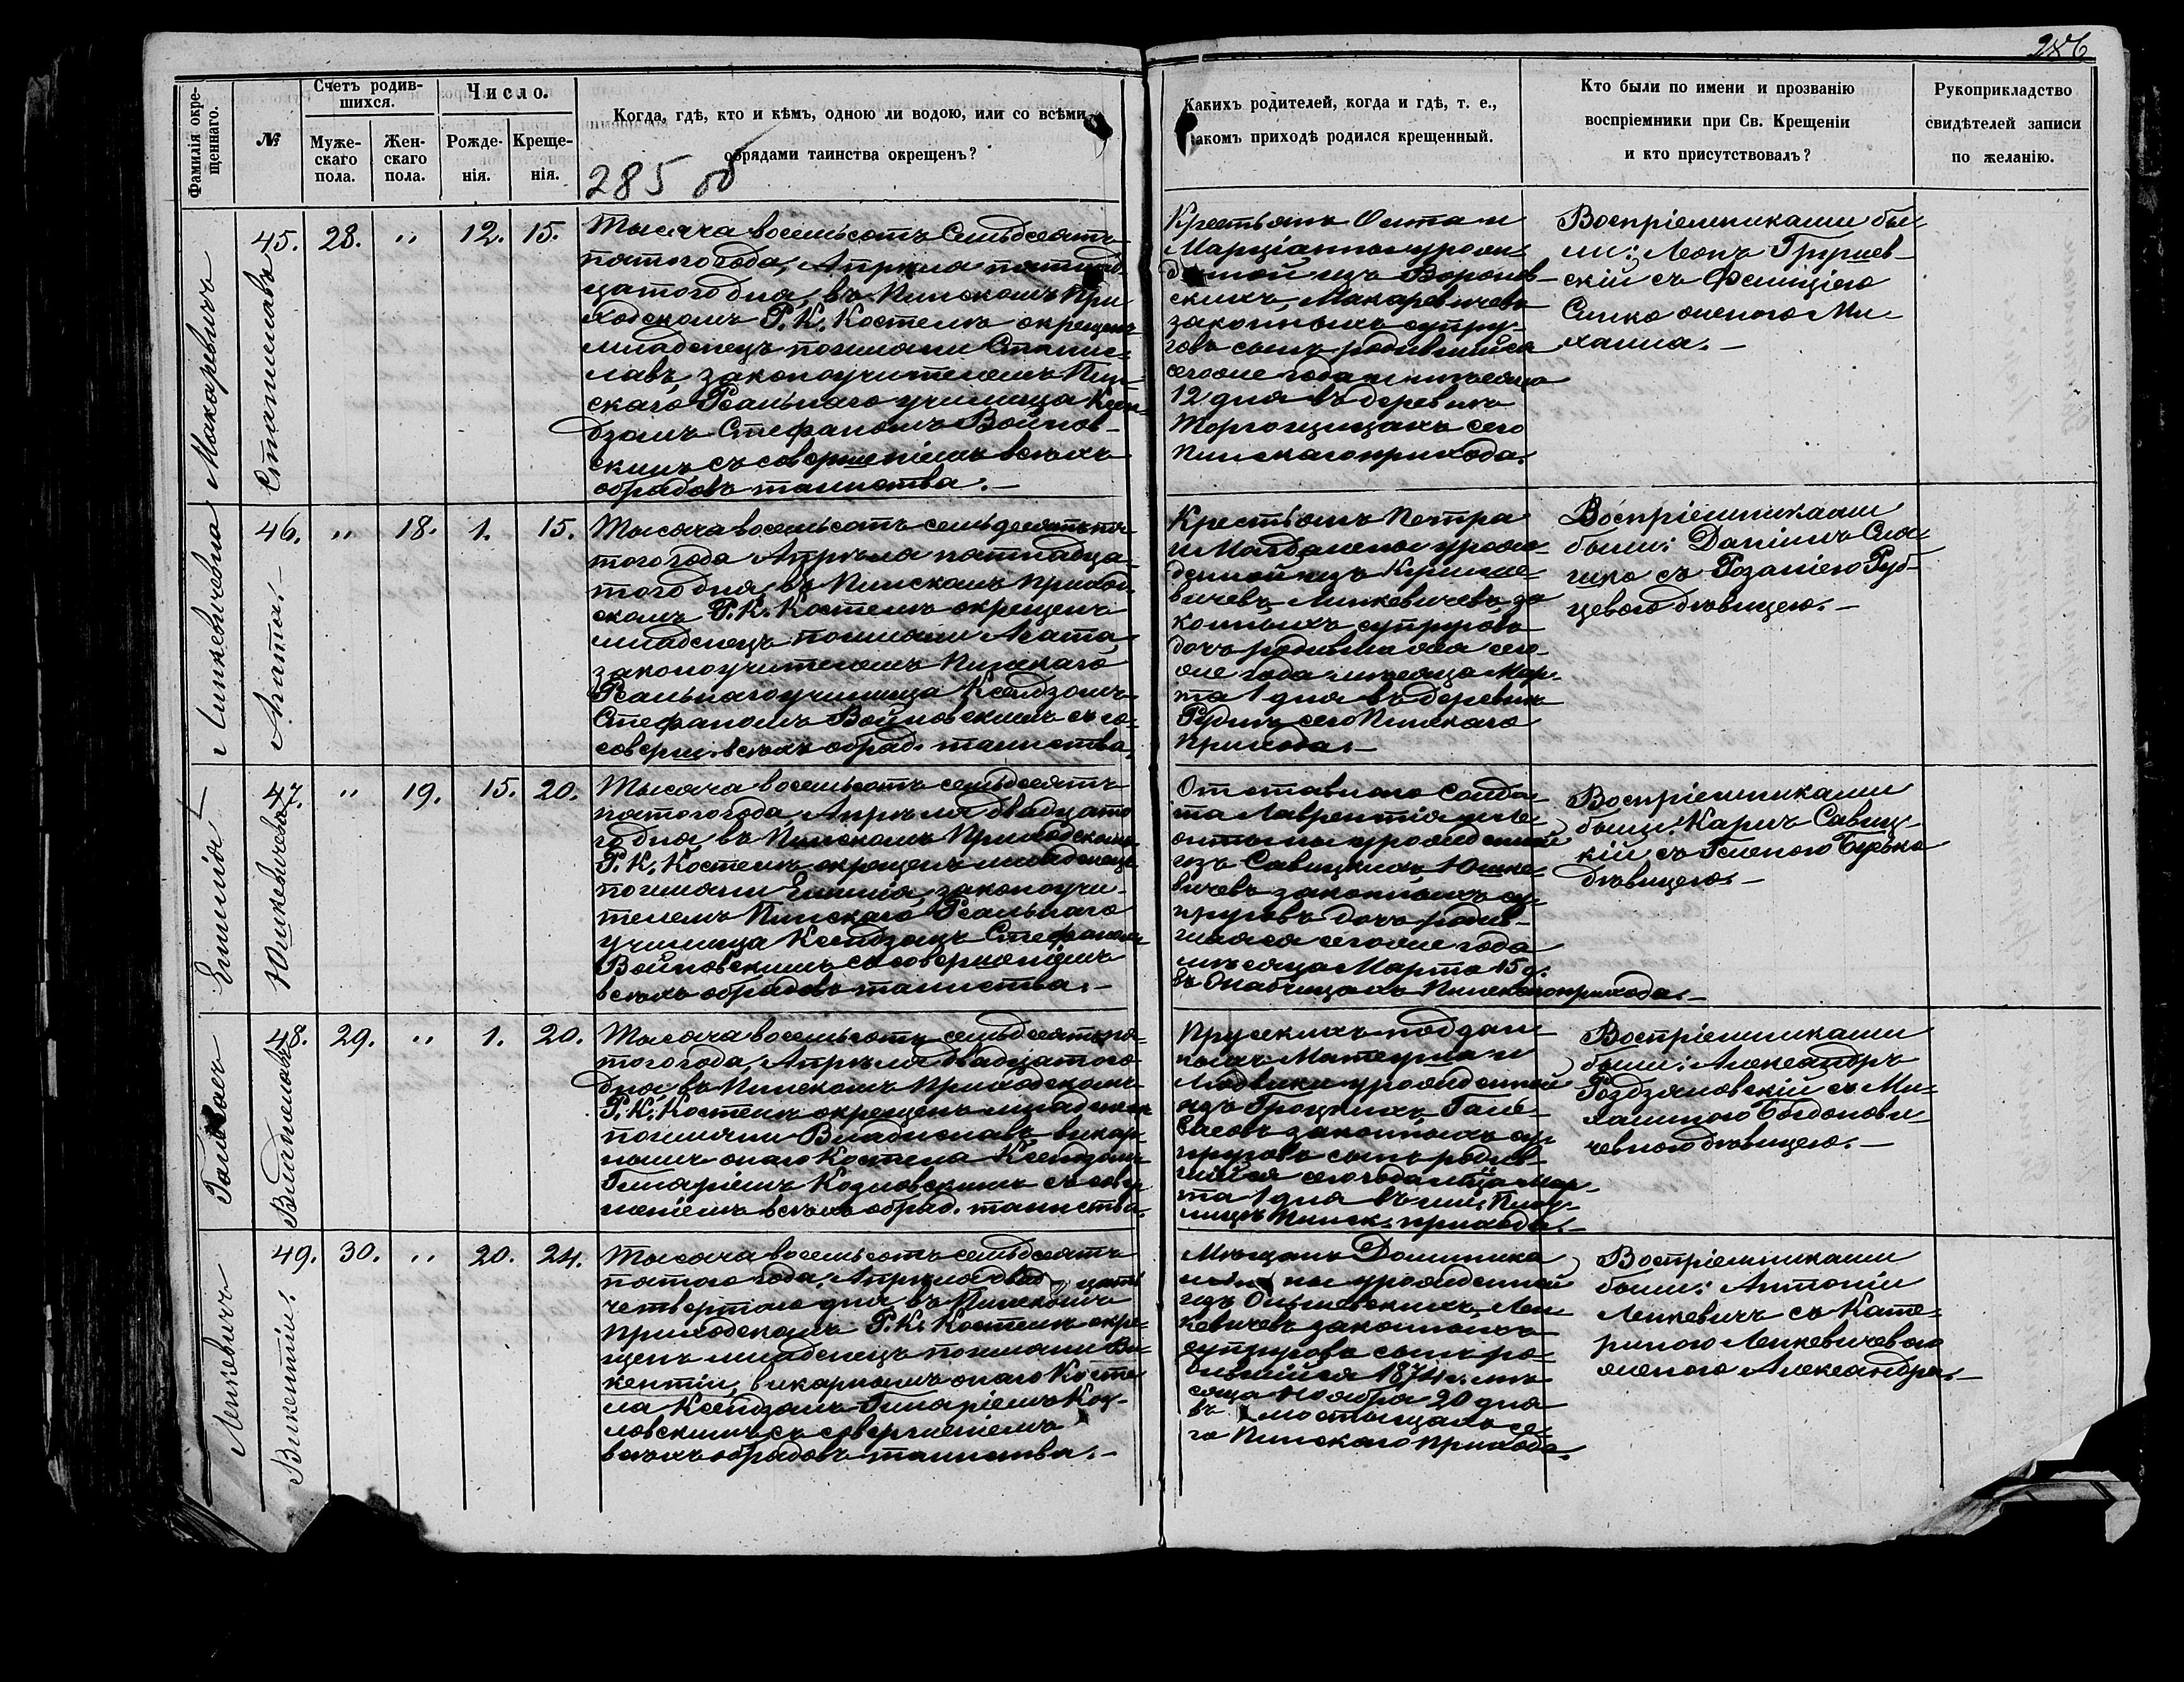 286
Фамилія окре-
щеннаго.
№
Счетъ родив-
шихся.
Муже-
скаго
пола.
Жен-
скаго
пола.
Число.
Рожде-
нія.
Креще-
нія.
Когда, гдѣ, кто и кѣмъ, одною ли водою, или со всѣми
обрядами таинства окрещенъ?
285 об
Какихъ родителей, когда и гдѣ, т. е.,
какомъ приходѣ родился крещенный.
Кто были по имени и прозванію
воспріемники при Св. Крещеніи
и кто присутствовалъ?
Рукоприкладство
свидѣтелей записи
по желанію.
Макаревичъ
Станиславъ
45. 28. " 12. 15.
Тысяча восемьсотъ Семьдесятъ
пятого года, Апрѣля пятнад-
цатого дня, въ Пинскомъ При
ходскомъ Р. К. Костелѣ окрещенъ
младенецъ поимяни Станис-
лавъ, законоучителемъ Пин-
скаго Реальнаго училища Ксен-
дзомъ Стефаномъ Войнов-
скимъ съ совершеніемъ всѣхъ
обрядовъ таинства. —
Крестьянъ и
Марціанны урож-
денной изъ Воронов-
скихъ, Макаревичевъ
законныхъ супру-
говъ сынъ родившійся
сегоже года и мѣсяца
12 дня въ деревнѣ
сего
Пинскаго прихода.
Воспріемниками бы-
ли: Леонъ
скій съ Фелиціею
женою Ми
хаила. —
Линкевичевна
Агата. —
46. " 18. 1. 15.
Тысяча восемьсотъ семьдесятъ пя-
того года Апрѣля пятнадца-
того дня, въ Пинскомъ Приход-
скомъ Р. К. Костелѣ окрещенъ
младенецъ поимяни Агата,
законоучителемъ Пинскаго
Реальнаго училища Ксендзомъ
Стефаномъ Войновскимъ съ со-
соверш. всѣхъ обряд. таинства.
Крестьянъ Петра
и Магдалены урож-
денной изъ
вичевъ Линкевичевъ за
конныхъ супруговъ
дочь родившаяся сего-
же года мѣсяца Мар-
та 1 дня въ деревнѣ
сего Пинскаго
прихода. —
Воспріемниками
были: Даніилъ
съ Розаліею Руб-
цевою дѣвицею. —
Юшкевичовна
47. " 19. 15. 20.
Тысяча восемьсотъ семьдесятъ
пятого года Апрѣля двадцато
го дня, въ Пинскомъ Приходскомъ
Р. К. Костелѣ окрещенъ младенецъ
поимяни законоучи-
телемъ Пинскаго Реальнаго
училища Ксендзомъ Стефаномъ
Войновскимъ съ совершеніемъ
всѣхъ обрядовъ таинства. —
Отставного Солда-
та Лаврентія и
урожденной
изъ Савицкихъ Юшке-
вичевъ законныхъ су-
пруговъ дочь родив-
шаяся сегоже года
мѣсяца Марта 15 д.
въ Пинскаго прихода. —
Воспріемниками
были: Савиц-
кій съ
дѣвицею. —
48. 29. " 1. 20.
Владиславъ
Тысяча восемьсотъ семьдесятъ пя-
того года, Апрѣля двадцатого
дня, въ Пинскомъ Приходскомъ
Р. К. Костелѣ окрещенъ младенецъ
поимяни Владиславъ, викар-
нымъ онаго Костела Ксендзомъ
Козловскимъ съ совер
шеніемъ всѣхъ обряд. таинства.
Прусскихъ поддан
ныхъ и
Людвики урожденной
изъ
законныхъ су-
пруговъ сынъ родив-
шійся сего года м-ца Мар-
та 1 дня
Пинск. прихода. —
Воспріемниками
были: Александръ
съ Ми-
халиною Богданови-
чевною дѣвицею. —
Ленкевичъ
Викентій.
49. 30. " 20. 24.
Тысяча восемьсотъ семьдесятъ
пятого года, Апрѣля двадцать
четвертого дня въ Пинскомъ
Приходскомъ Р. К. Костелѣ окре-
щенъ младенецъ поимяни Ви-
кентій, викарнымъ онаго Косте
ла Ксендзомъ Коз-
ловскимъ съ совершеніемъ
всѣхъ обрядовъ таинства. —
Мѣщанъ Доминика
и урожденной
изъ Ольшевскихъ Лен
кевичевъ законныхъ
супруговъ сынъ ро-
дившійся 1874 г. мѣ
сяца Ноября 20 дня
въ се-
го Пинскаго прихода.
Воспріемниками
были: Антоній
Ленкевичъ съ Кате-
риною Ленкевичевою
женою Александра. —